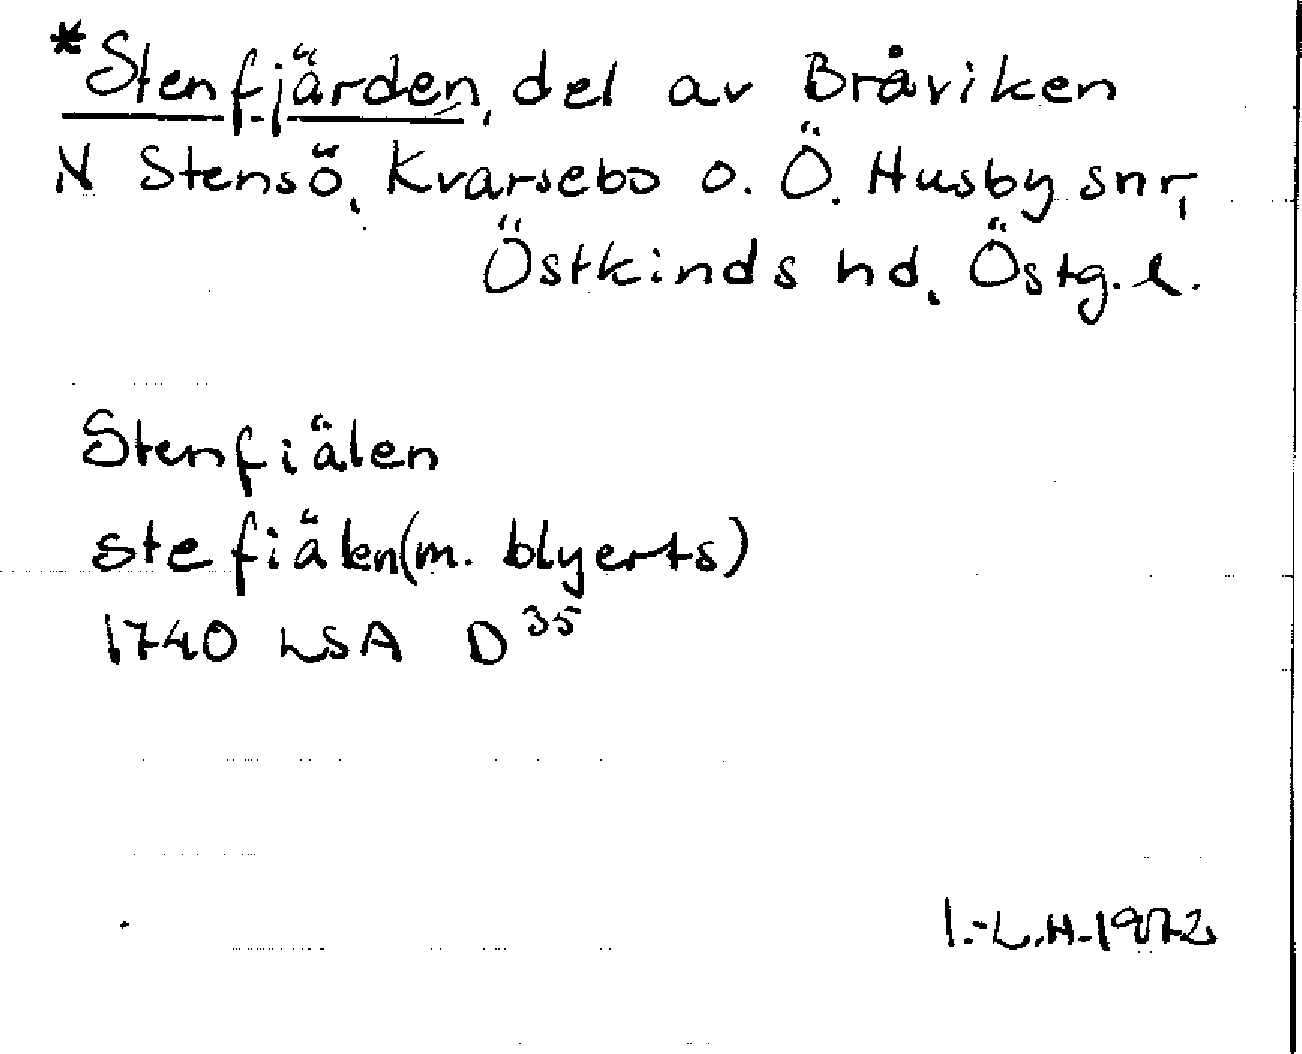 *Stenfjärden, del av Bråviken
N Stensö, Kvarsebo o. Ö. Husby snr,
Östkinds hd, Östg. l.
Stenfiälen
stefiälen (m. blyerts)
1740 LSA D³⁵
I.-L.H. 1972